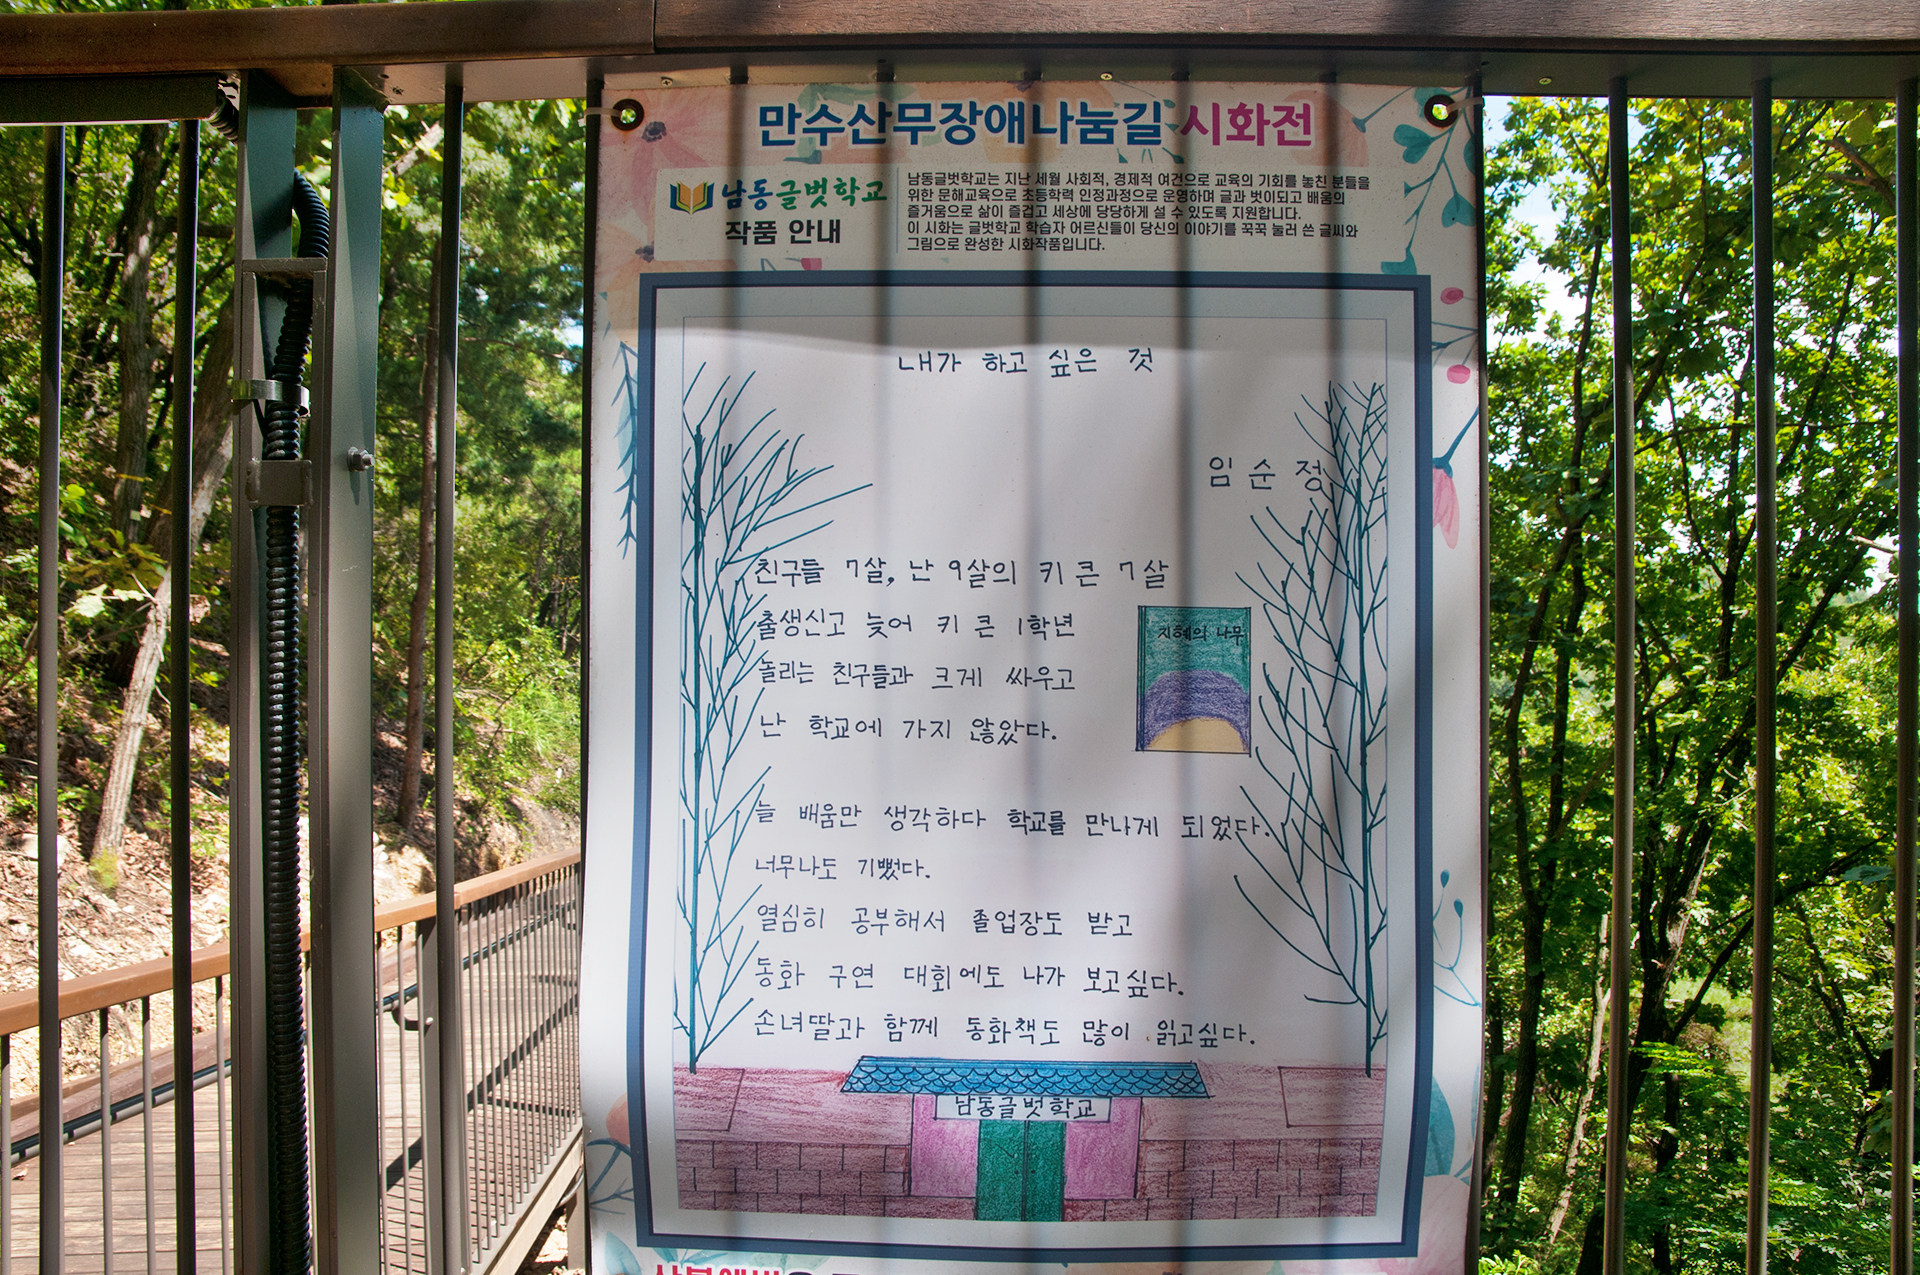 만수산무장애나눔길 시화전
남동글벗학교
작품 안내
남동글벗학교는 지난 세월 사회적, 경제적 여건으로 교육의 기회를 놓친 분들을
위한 문해교육으로 초등학력 인정과정으로 운영하며 글과 벗이되고 배움의
즐거움으로 삶이 즐겁고 세상에 당당하게 설 수 있도록 지원합니다.
이 시화는 글벗학교 학습자 어르신들이 당신의 이야기를 꾹꾹 눌러 쓴 글씨와
그림으로 완성한 시화작품입니다.
내가 하고 싶은 것
임순정
친구들 7살, 난 9살의 키 큰 7살
출생신고 늦어 키 큰 1학년
놀리는 친구들과 크게 싸우고
난 학교에 가지 않았다.
지혜의 나무
늘 배움만 생각하다 학교를 만나게 되었다.
너무나도 기뻤다.
열심히 공부해서 졸업장도 받고
동화 구연 대회에도 나가 보고싶다.
손녀딸과 함께 동화책도 많이 읽고싶다.
남동글벗학교